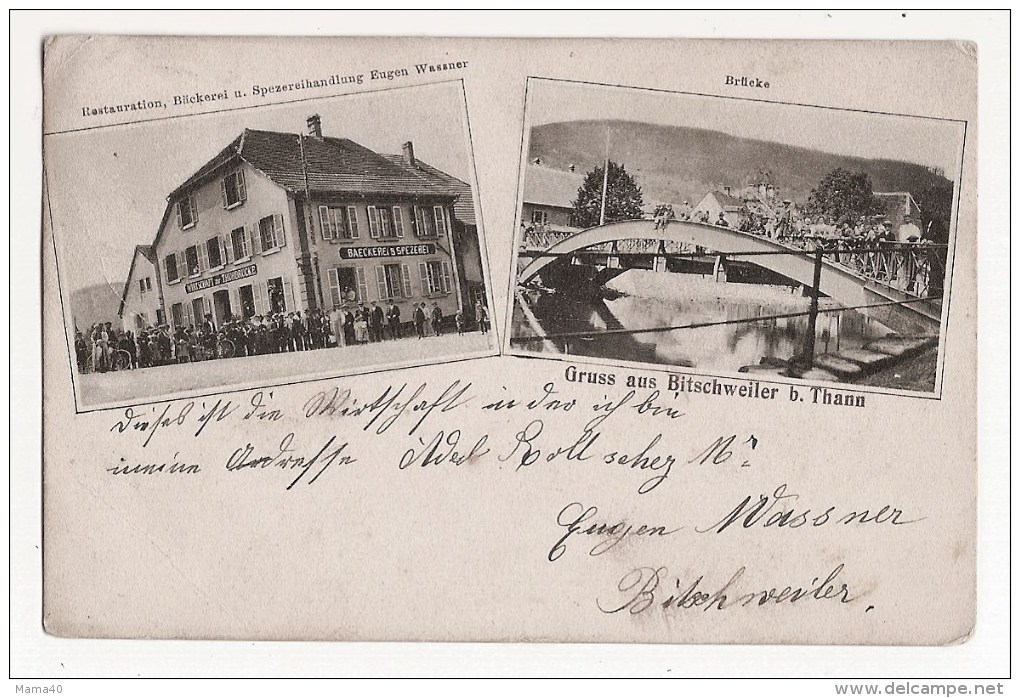 Restauration, Bäckerei u. Spezereihandlung Eugen Wassner
Brücke
WIRTSCHAFT zur THURBRÜCKE
BAECKEREI & SPEZEREI
Gruss aus Bitschweiler b. Thann
Dieses ist die Wirtschaft in der ich bin
meine Adresse Adel Roll schez Mr
Eugen Wassner
Bitschweiler.
Mama40
www.delcampe.net